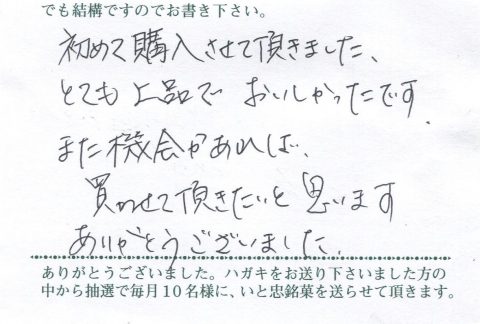 でも結構ですのでお書き下さい。
初めて購入させて頂きました、
とても上品で おいしかったです.
また機会があれば、
買わせて頂きたいと思います
ありがとうございました.
ありがとうございました。ハガキをお送り下さいました方の
中から抽選で毎月10名様に、いと忠銘菓を送らせて頂きます。